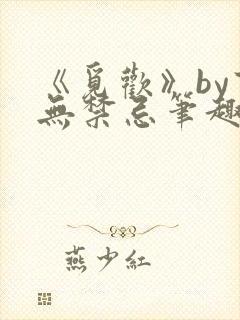 《覓歡》by
無禁忌筆趣
燕少紅